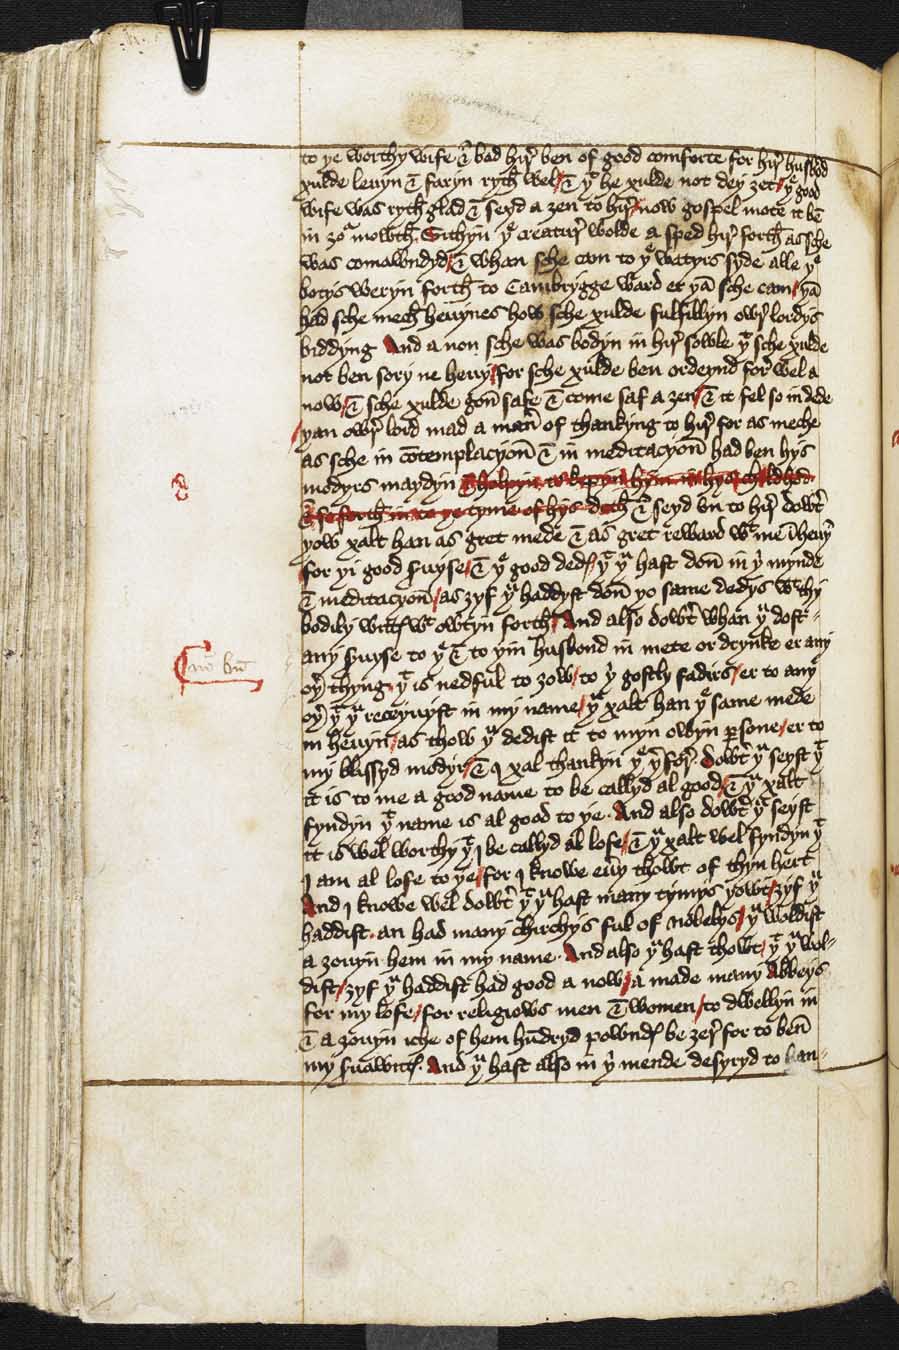 to ye worthy wife & bad hir̉ ben of good comforte for hir̉ husbōd
xulde leuyn & faryn rytħ wel / & yͭ he xulde not dey zet / yͤ good
wife was rytħ glad & seyd a zen to hir̉ / now gospel mote it bē
in zoͬ mowtħ. Sithyn yͤ creatur̉ wolde a sped hir̉ fortħ as sche
was comawndyd / & whan sche cam to yͤ watyrs syde alle yͤ
botys weryn fortħ to Cambrygge ward er yā sche cam / yā
had sche mecħ heuynes how sche xulde fulfillyn owr̉ lordys
biddyng And a non sche was bodyn in hir̉ sowle yͭ sche xulde
not ben sory ne heuy / for sche xulde ben ordeynd for̉ wel a
now / & sche xulde gon̄ safe & come saf a zen / & it fel so in dede
/ yan owr̉ lord mad a man̉ of thankyng to hir̉ for as meche
as sche in cōtemplacyon̄ & in meditacyon̄ had ben hys
modyrs maydyn & holpyn to kepyn hym in hys chyldhod
& so fortħ in to ye tyme of hys detħ & seyd vn to hir̉ dowt̉
yow xalt han as gret mede & as gret reward wͭ me ī heuỷ
for yi good s̉uyse / & yͤ good dedꝭ yͭ yͧ hast don̄ in ỷ mynde
& meditacyon̄ / as zyf yͧ haddyst don̄ yo same dedys wͭ thy
bodily wittꝭ wͭ owtyn fortħ / And also dowt̉ whan yͧ dost
nō bn̄
any s̉uyse to yͤ & to yin husbond in mete or drynke er any
oỷ thyng yͭ is nedful to zow / to ỷ gostly fadirs / er to any
oỷ yͭ yͧ receyuyst in my name / yͧ xalt han yͤ same mede
in heuyn / as thow yͧ dedist it to myn owyn ꝑsone / er to
my blissyd modyr / & I xal thankyn yͤ ỷfor̉. Dowt̉ yͧ seyst yͭ
it is to me a good name to be callyd al good / & yͧ xalt
fyndyn yͭ name is al good to ye. And also dowt̉ yͧ seyst
it is wel worthy yͭ I be callyd al lofe / & yͧ xalt wel fyndyn yͭ
I am al lofe to ye / for I knowe eủy thowt of thyn hert
And I knowe wel dowt̉ yͭ yͧ hast many tymys yowt / zyf yͧ
haddist. an had many chirchys ful of nobelys / yͧ woldist
a zouyn hem in my name. And also yͧ hast thowt / yͭ yͧ wol-
dist / zyf yͧ haddist had good a now / a made many Abbeys
for my lofe / for religiows men & women / to dwellyn in
& a zouyn iche of hem hūdryd powndꝭ be zer̉ for to ben̄
my s̉uawntꝭ. And yͧ hast also in ỷ mende desyryd to han-